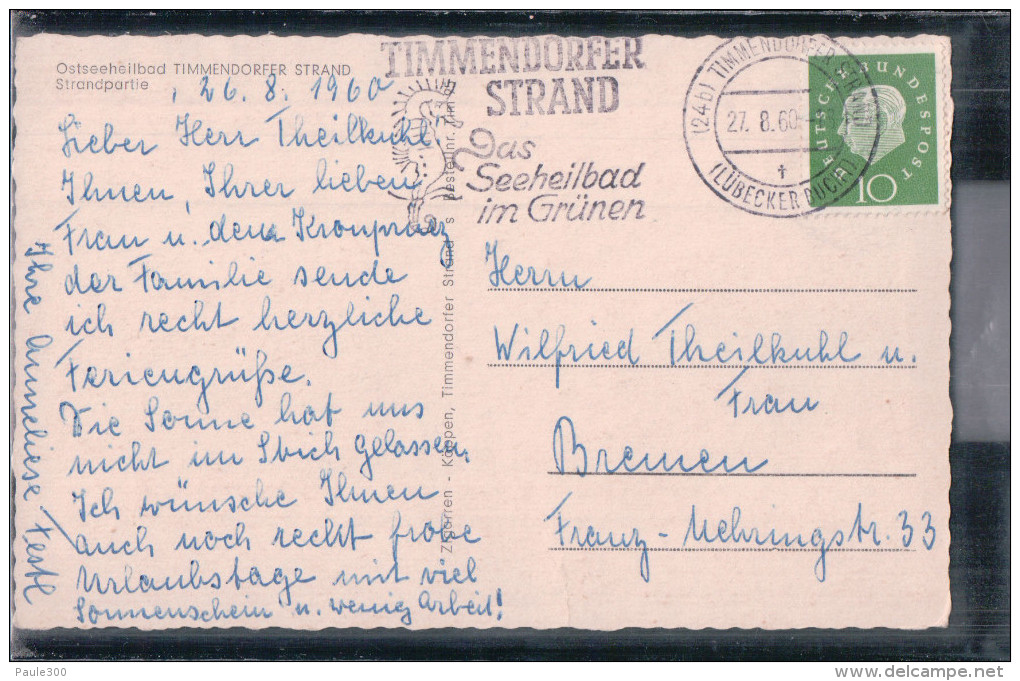 Ostseeheilbad TIMMENDORFER STRAND
Strandpartie
26. 8. 1960
Lieber Herr Theilkuhl
Ihnen, Ihrer lieben
Frau u. dem Kronprinz
der Familie sende
ich recht herzliche
Feriengrüße.
Die Sonne hat uns
nicht im Stich gelassen.
Ich wünsche Ihnen
auch noch recht frohe
Urlaubstage mit viel
Sonnenschein u. wenig Arbeit!
Ihre Anneliese Festl
Zigarren - Käppen, Timmendorfer Strand
Bestellnr.
TIMMENDORFER
STRAND
Das
Seeheilbad
im Grünen
(24b) TIMMENDORFER STRAND
27. 8. 60
(LÜBECKER BUCHT)
DEUTSCHE BUNDESPOST
10
Herrn
Wilfried Theilkuhl u.
Frau
Bremen
Franz-Mehringstr. 33
Paule300